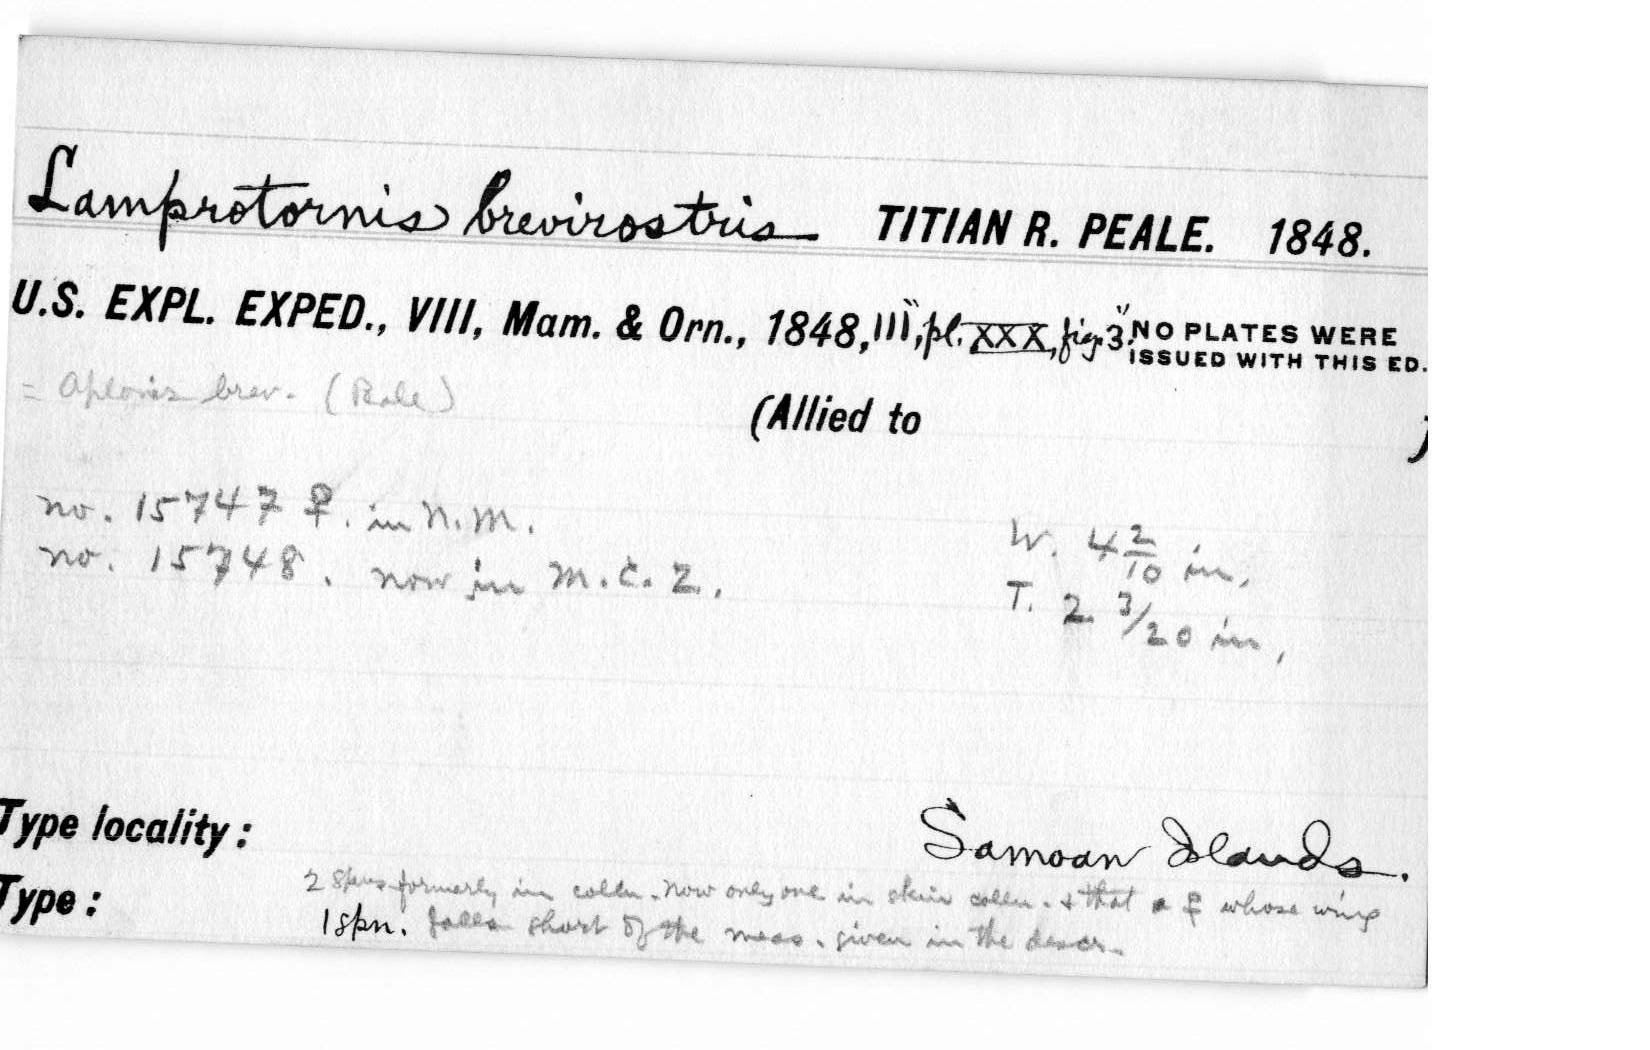 Lamprotornis brevirostris TITIAN R. PEALE. 1848.
U.S. EXPL. EXPED., VIII, Mam. & Orn., 1848, 111, "pl. XXX, fig. 3." NO PLATES WERE
ISSUED WITH THIS ED.
= Aplonis brev. (Peale)
(Allied to )
no. 15747 ♀. in N.M.
no. 15748. now in M.C.Z.
W. 4 2/10 in.
T. 2 3/20 in.
Type locality: Samoan Islands.
Type: 2 spns formerly in colln. now only one in skin colln. & that a ♀ whose wing
1 spn. falls short of the meas. given in the descr.